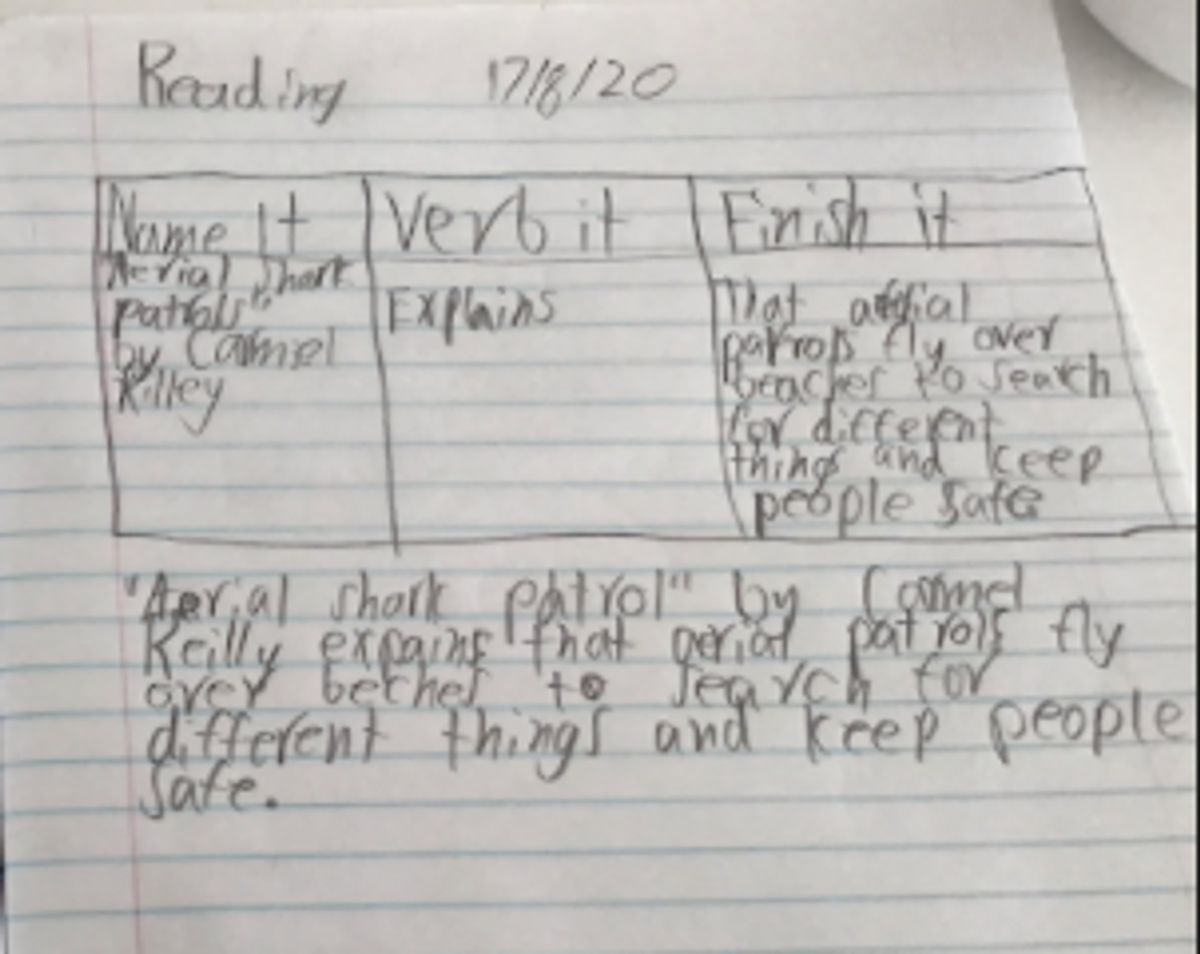 Reading 17/8/20
Name It
Verb it
Finish it
Aerial Shark
patrols"
by Carmel
Rilley
Explains
That aerial
patrols fly over
beaches to search
for different
things and keep
people safe
"Aerial shark patrol" by Carmel
Reilly expains that aerial patrols fly
over beches to search for
different things and keep people
safe.